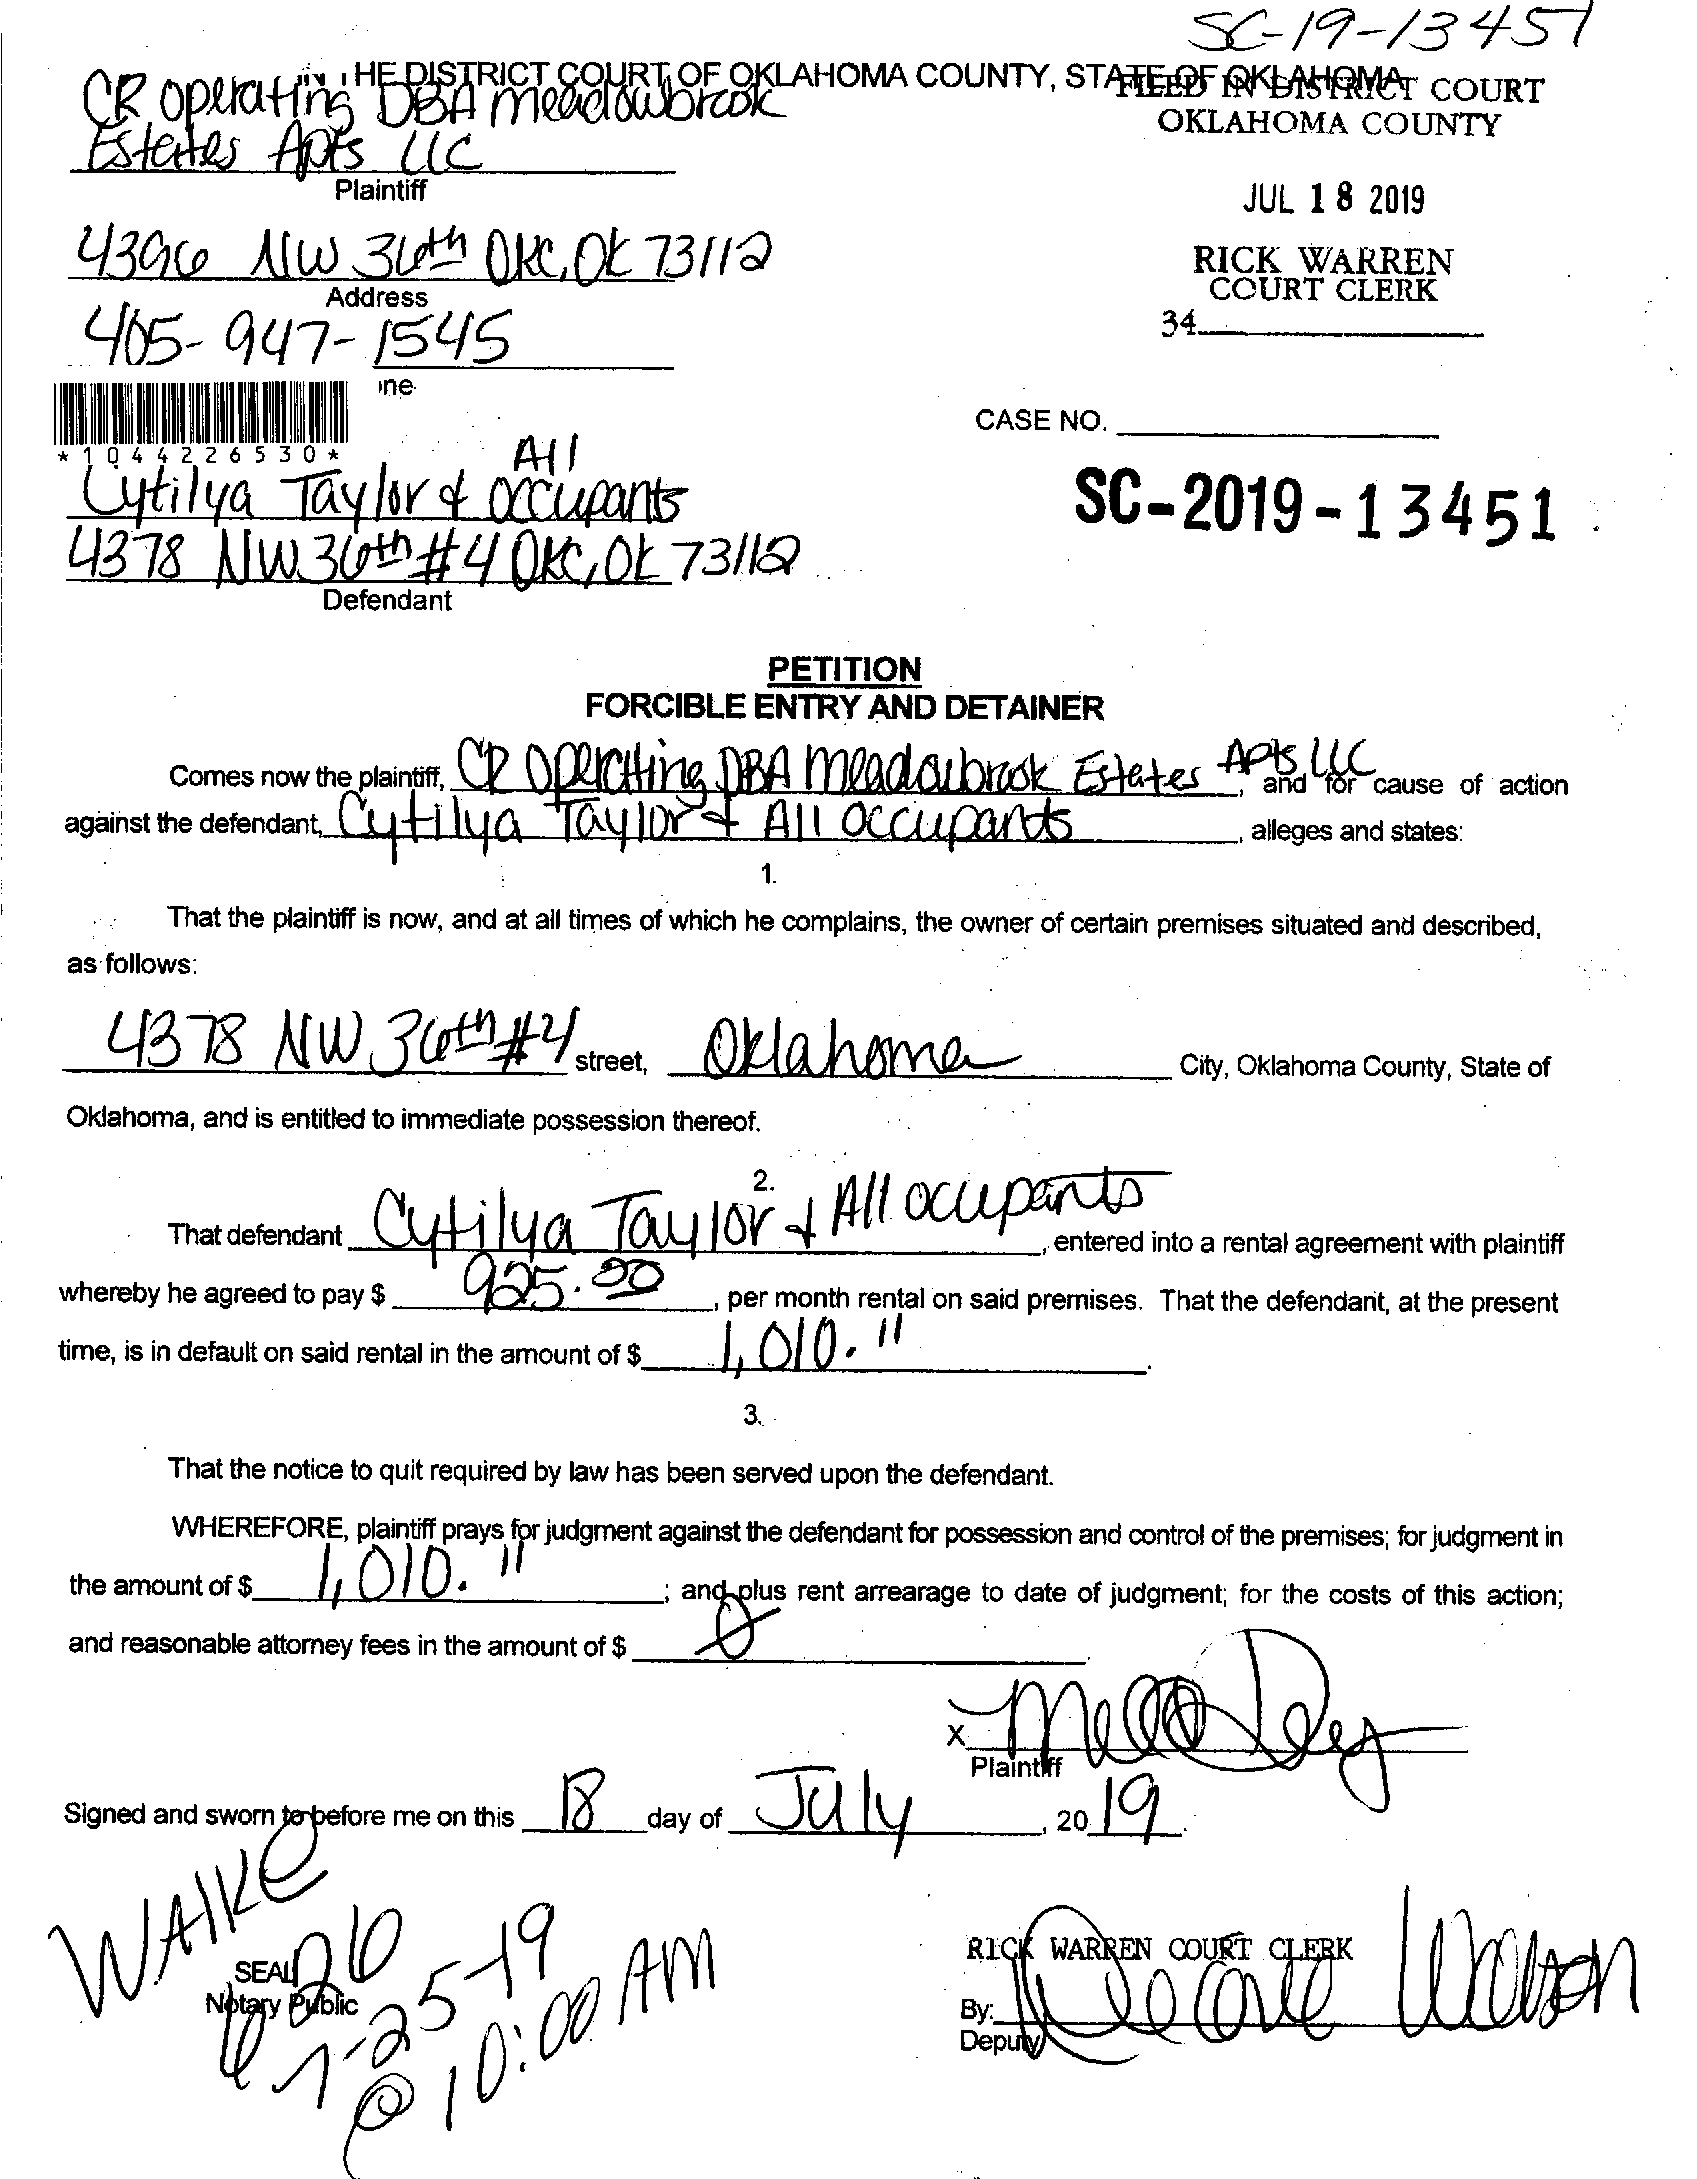 SC-19-13451
IN THE DISTRICT COURT OF OKLAHOMA COUNTY, STATE OF OKLAHOMA
FILED IN DISTRICT COURT
OKLAHOMA COUNTY
CR Operating DBA Meadowbrook
Estates Apts LLC
Plaintiff
JUL 18 2019
4396 NW 36th OKC, OK 73112
Address
RICK WARREN
COURT CLERK
405-947-1545
34
ne
*1044226530*
CASE NO.
SC-2019-13451
Cytilya Taylor & All occupants
4378 NW 36th #4 OKC, OK 73112
Defendant
PETITION
FORCIBLE ENTRY AND DETAINER
Comes now the plaintiff, CR Operating DBA Meadowbrook Estates Apts LLC, and for cause of action
against the defendant, Cytilya Taylor + All occupants, alleges and states:
1.
That the plaintiff is now, and at all times of which he complains, the owner of certain premises situated and described,
as follows:
4378 NW 36th #4 street, Oklahoma City, Oklahoma County, State of
Oklahoma, and is entitled to immediate possession thereof.
2.
That defendant Cytilya Taylor + All occupants, entered into a rental agreement with plaintiff
whereby he agreed to pay $ 925.00, per month rental on said premises. That the defendant, at the present
time, is in default on said rental in the amount of $ 1,010.11.
3.
That the notice to quit required by law has been served upon the defendant.
WHEREFORE, plaintiff prays for judgment against the defendant for possession and control of the premises; for judgment in
the amount of $ 1,010.11; and plus rent arrearage to date of judgment; for the costs of this action;
and reasonable attorney fees in the amount of $ 0
X
Plaintiff
Signed and sworn to before me on this 18 day of July, 2019.
WAIKE
SEAL
Notary Public
7-25-19
@ 10:00 AM
RICK WARREN COURT CLERK
By:
Deputy